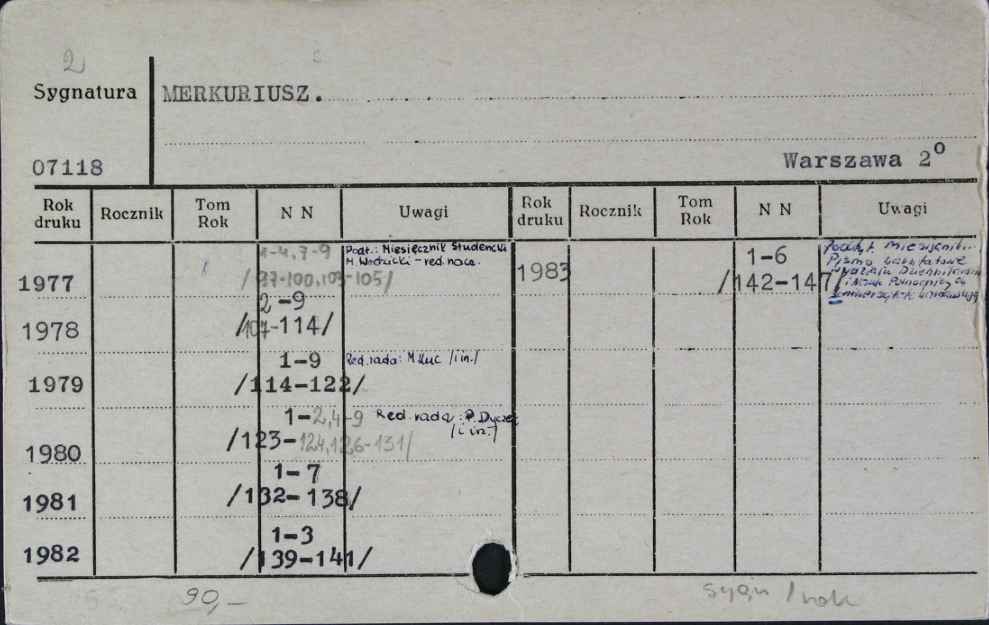 2
Sygnatura
MERKURIUSZ.
07118
Warszawa 2º
Rok druku Rocznik Tom Rok N N Uwagi Rok druku Rocznik Tom Rok N N Uwagi
1-4,7-9 Podt.: Miesięcznik Studencki
M. - red. nacz.
1977 /97-100,103-105/
1983 1-6
/142-147/
Podtyt. Miesięcznik
Pismo
i Nauk Politycznych
2-9
1978 /107-114/
1-9 Red. rada: M. Kuc /i in./
1979 /114-122/
1-2,4-9 Red. rada: P.
/i in./
1980 /123-124,126-131/
1-7
1981 /132-138/
1-3
1982 /139-141/
90,-
sygn / rok